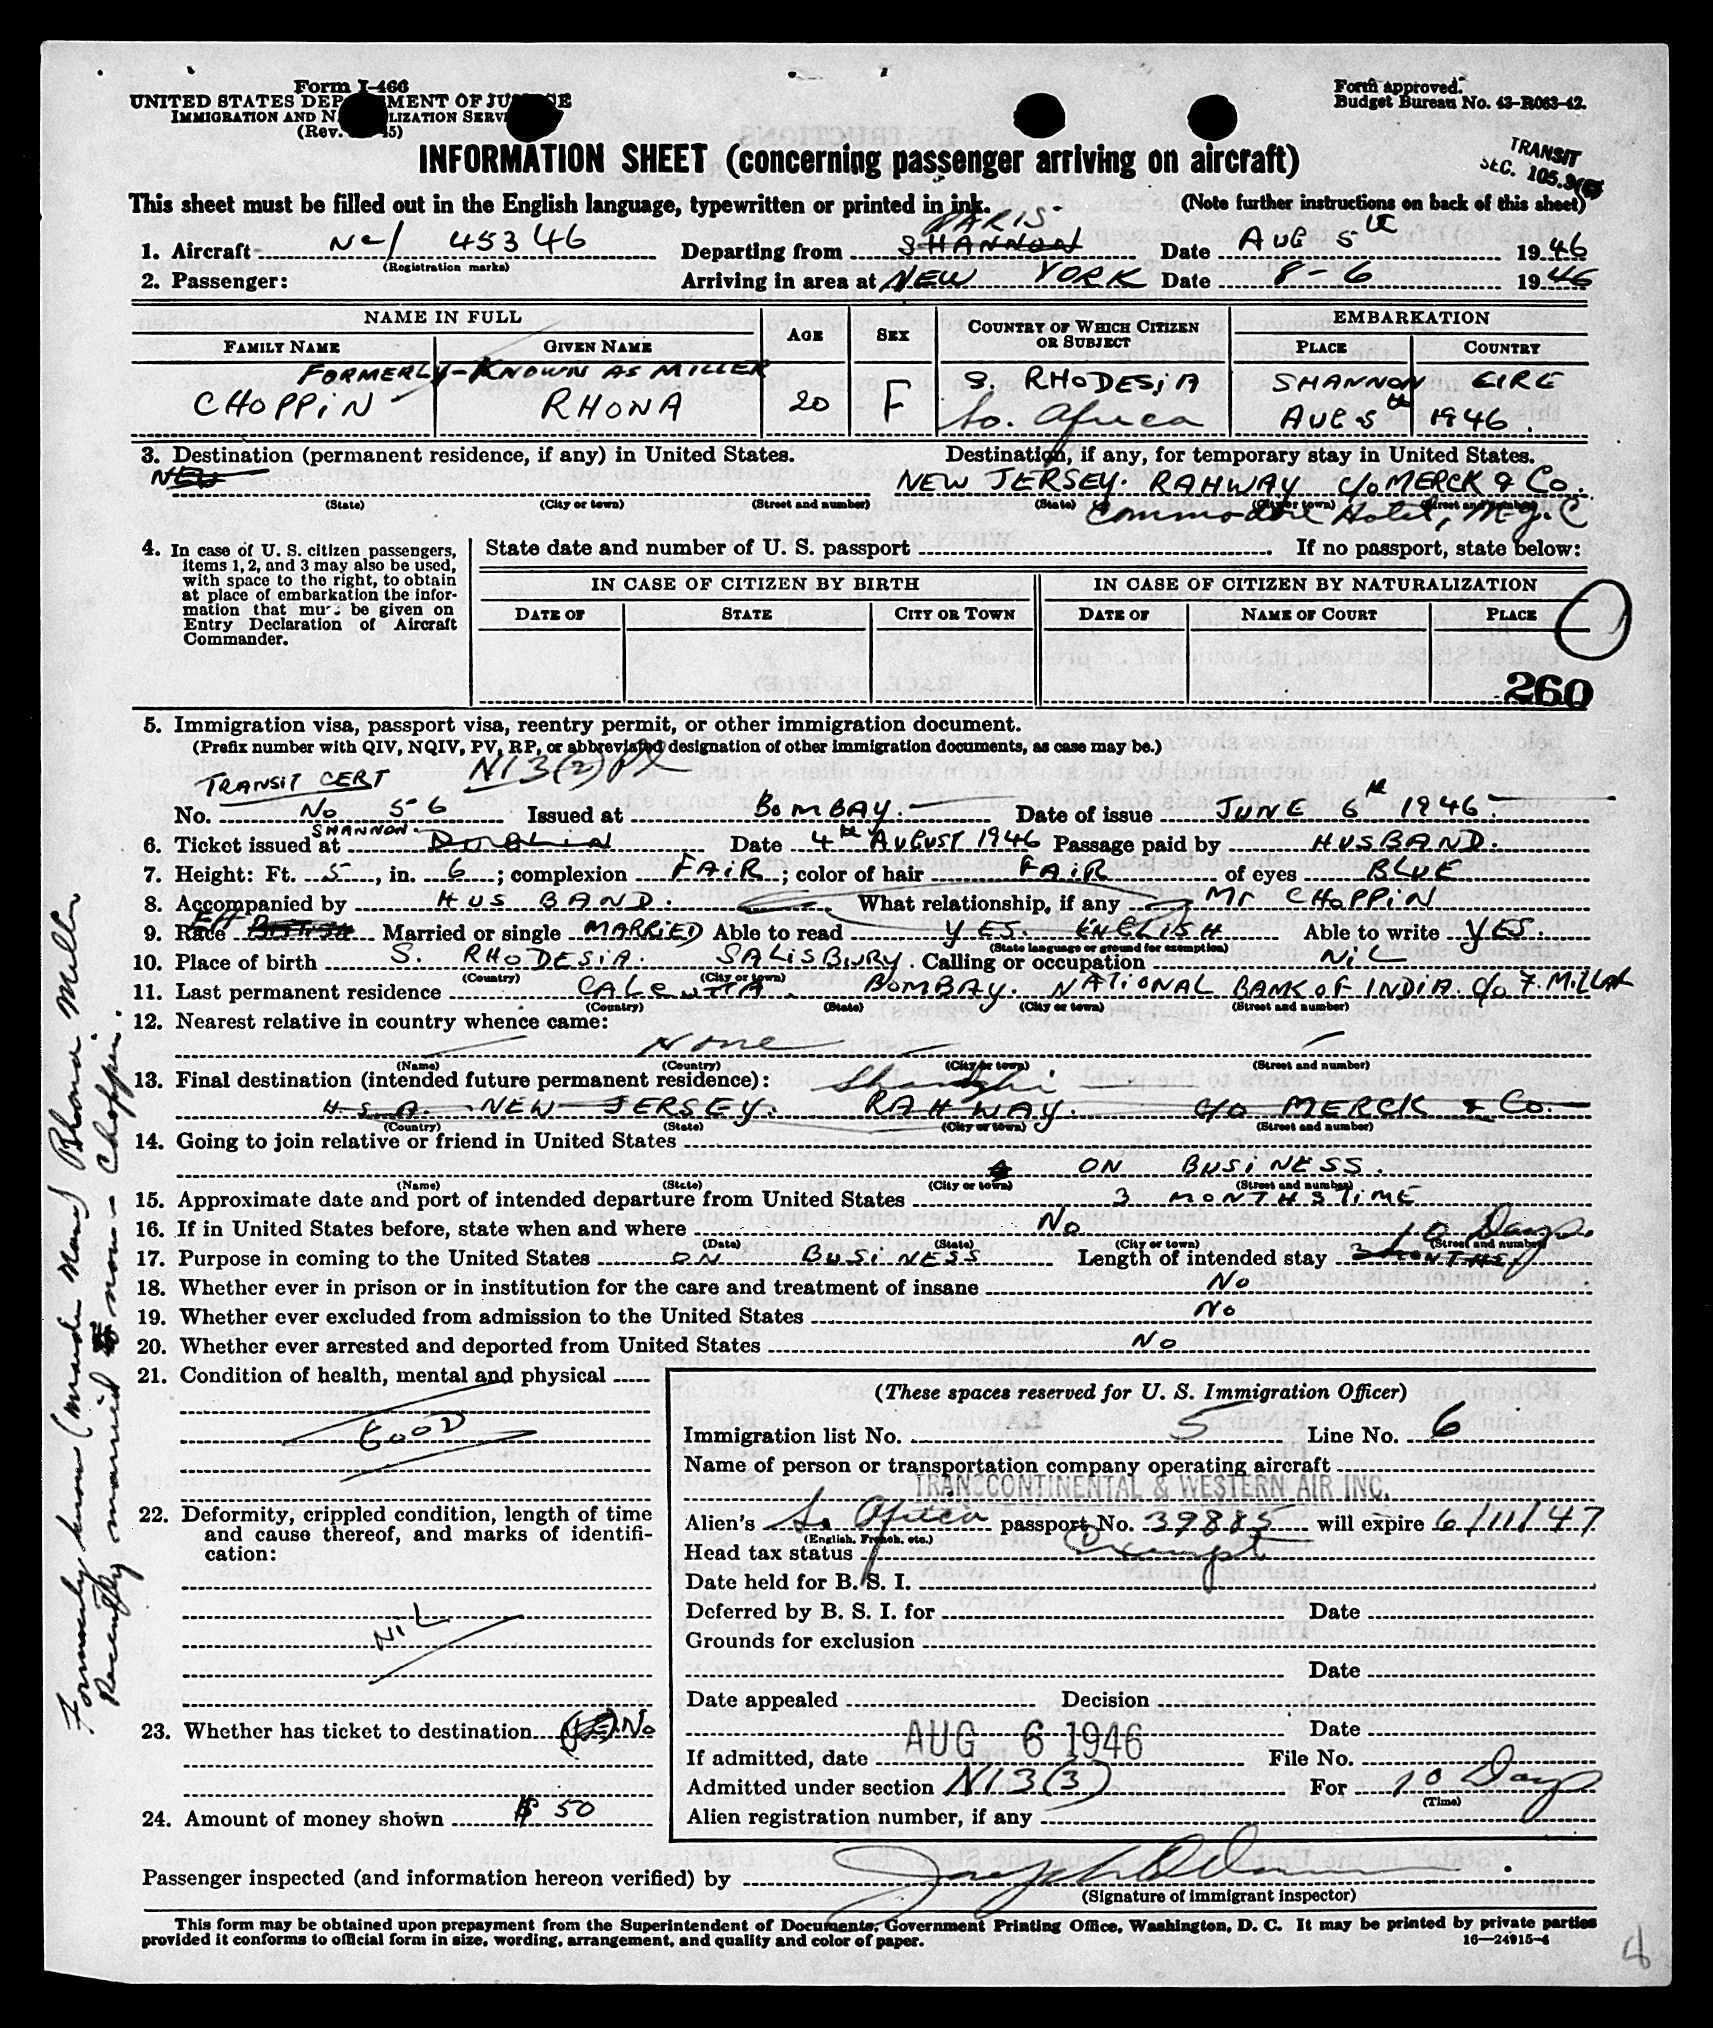 Form I-466
UNITED STATES DEP MENT OF JU E
IMMIGRATION AND N LIZATION SERV
(Rev. 45)
Form approved.
Budget Bureau No. 43-R063-42.
TRANSIT
SEC. 105.3
INFORMATION SHEET (concerning passenger arriving on aircraft)
This sheet must be filled out in the English language, typewritten or printed in ink. (Note further instructions on back of this sheet)
PARIS
1. Aircraft 45346 Departing from SHANNON Date AUG 5th 1946
(Registration marks)
2. Passenger: Arriving in area at NEW YORK Date 8-6 1946
NAME IN FULL AGE SEX COUNTRY OF WHICH CITIZEN OR SUBJECT EMBARKATION
FAMILY NAME GIVEN NAME PLACE COUNTRY
FORMERLY-KNOWN AS MILLER S. RHODESIA SHANNON EIRE
CHOPPIN RHONA 20 F So. Africa AUG 5th 1946.
3. Destination (permanent residence, if any) in United States. Destination, if any, for temporary stay in United States.
NEW
NEW JERSEY. RAHWAY C/o MERCK & Co.
(State) (City or town) (Street and number) (State) (City or town) (Street and number)
Commodore Hotel, N.Y.C
4. In case of U. S. citizen passengers, items 1, 2, and 3 may also be used, with space to the right, to obtain at place of embarkation the information that must be given on Entry Declaration of Aircraft Commander.
State date and number of U. S. passport If no passport, state below:
IN CASE OF CITIZEN BY BIRTH IN CASE OF CITIZEN BY NATURALIZATION
DATE OF STATE CITY OR TOWN DATE OF NAME OF COURT PLACE
260
5. Immigration visa, passport visa, reentry permit, or other immigration document.
(Prefix number with QIV, NQIV, PV, RP, or abbreviated designation of other immigration documents, as case may be.)
TRANSIT CERT NI 3(2)
No. No 56 Issued at BOMBAY. Date of issue JUNE 6th 1946.
SHANNON
6. Ticket issued at DUBLIN Date 4th AUGUST 1946 Passage paid by HUSBAND.
7. Height: Ft. 5, in. 6; complexion FAIR; color of hair FAIR of eyes BLUE
8. Accompanied by HUSBAND. What relationship, if any Mr CHOPPIN
9. Race BRITISH Married or single MARRIED Able to read YES. ENGLISH Able to write YES.
(State language or ground for exemption)
10. Place of birth S. RHODESIA. SALISBURY. Calling or occupation NIL
(Country) (City or town)
11. Last permanent residence CALCUTTA. BOMBAY. NATIONAL BANK OF INDIA. c/o F. MILLAR
(Country) (State) (City or town) (Street and number)
12. Nearest relative in country whence came:
None
(Name) (Country) (City or town) (Street and number)
13. Final destination (intended future permanent residence): Shanghi
U.S.A. NEW JERSEY. RAHWAY. C/o MERCK & Co.
(Country) (State) (City or town) (Street and number)
14. Going to join relative or friend in United States
ON BUSINESS.
(Name) (State) (City or town) (Street and number)
15. Approximate date and port of intended departure from United States 3 MONTHS TIME
16. If in United States before, state when and where No
(Date) (State) (City or town) (Street and number)
10 Days.
17. Purpose in coming to the United States ON BUSINESS Length of intended stay 3 MONTHS
18. Whether ever in prison or in institution for the care and treatment of insane No
19. Whether ever excluded from admission to the United States No
20. Whether ever arrested and deported from United States No
21. Condition of health, mental and physical
GOOD
22. Deformity, crippled condition, length of time and cause thereof, and marks of identification:
NIL
23. Whether has ticket to destination (YES) No
24. Amount of money shown $ 50
(These spaces reserved for U. S. Immigration Officer)
Immigration list No. 5 Line No. 6
Name of person or transportation company operating aircraft
TRANSCONTINENTAL & WESTERN AIR INC.
Alien's So Africa passport No. 39885 will expire 6/11/47
(English, French, etc.)
Head tax status Exempt
Date held for B. S. I.
Deferred by B. S. I. for Date
Grounds for exclusion
Date
Date appealed Decision
Date
If admitted, date AUG 6 1946 File No.
Admitted under section NI 3(3) For 10 Days
(Time)
Alien registration number, if any
Passenger inspected (and information hereon verified) by
(Signature of immigrant inspector)
This form may be obtained upon prepayment from the Superintendent of Documents, Government Printing Office, Washington, D. C. It may be printed by private parties
provided it conforms to official form in size, wording, arrangement, and quality and color of paper. 16—24915-4
Formerly known (maiden name) Rhona Miller
Recently married & now - Choppin.